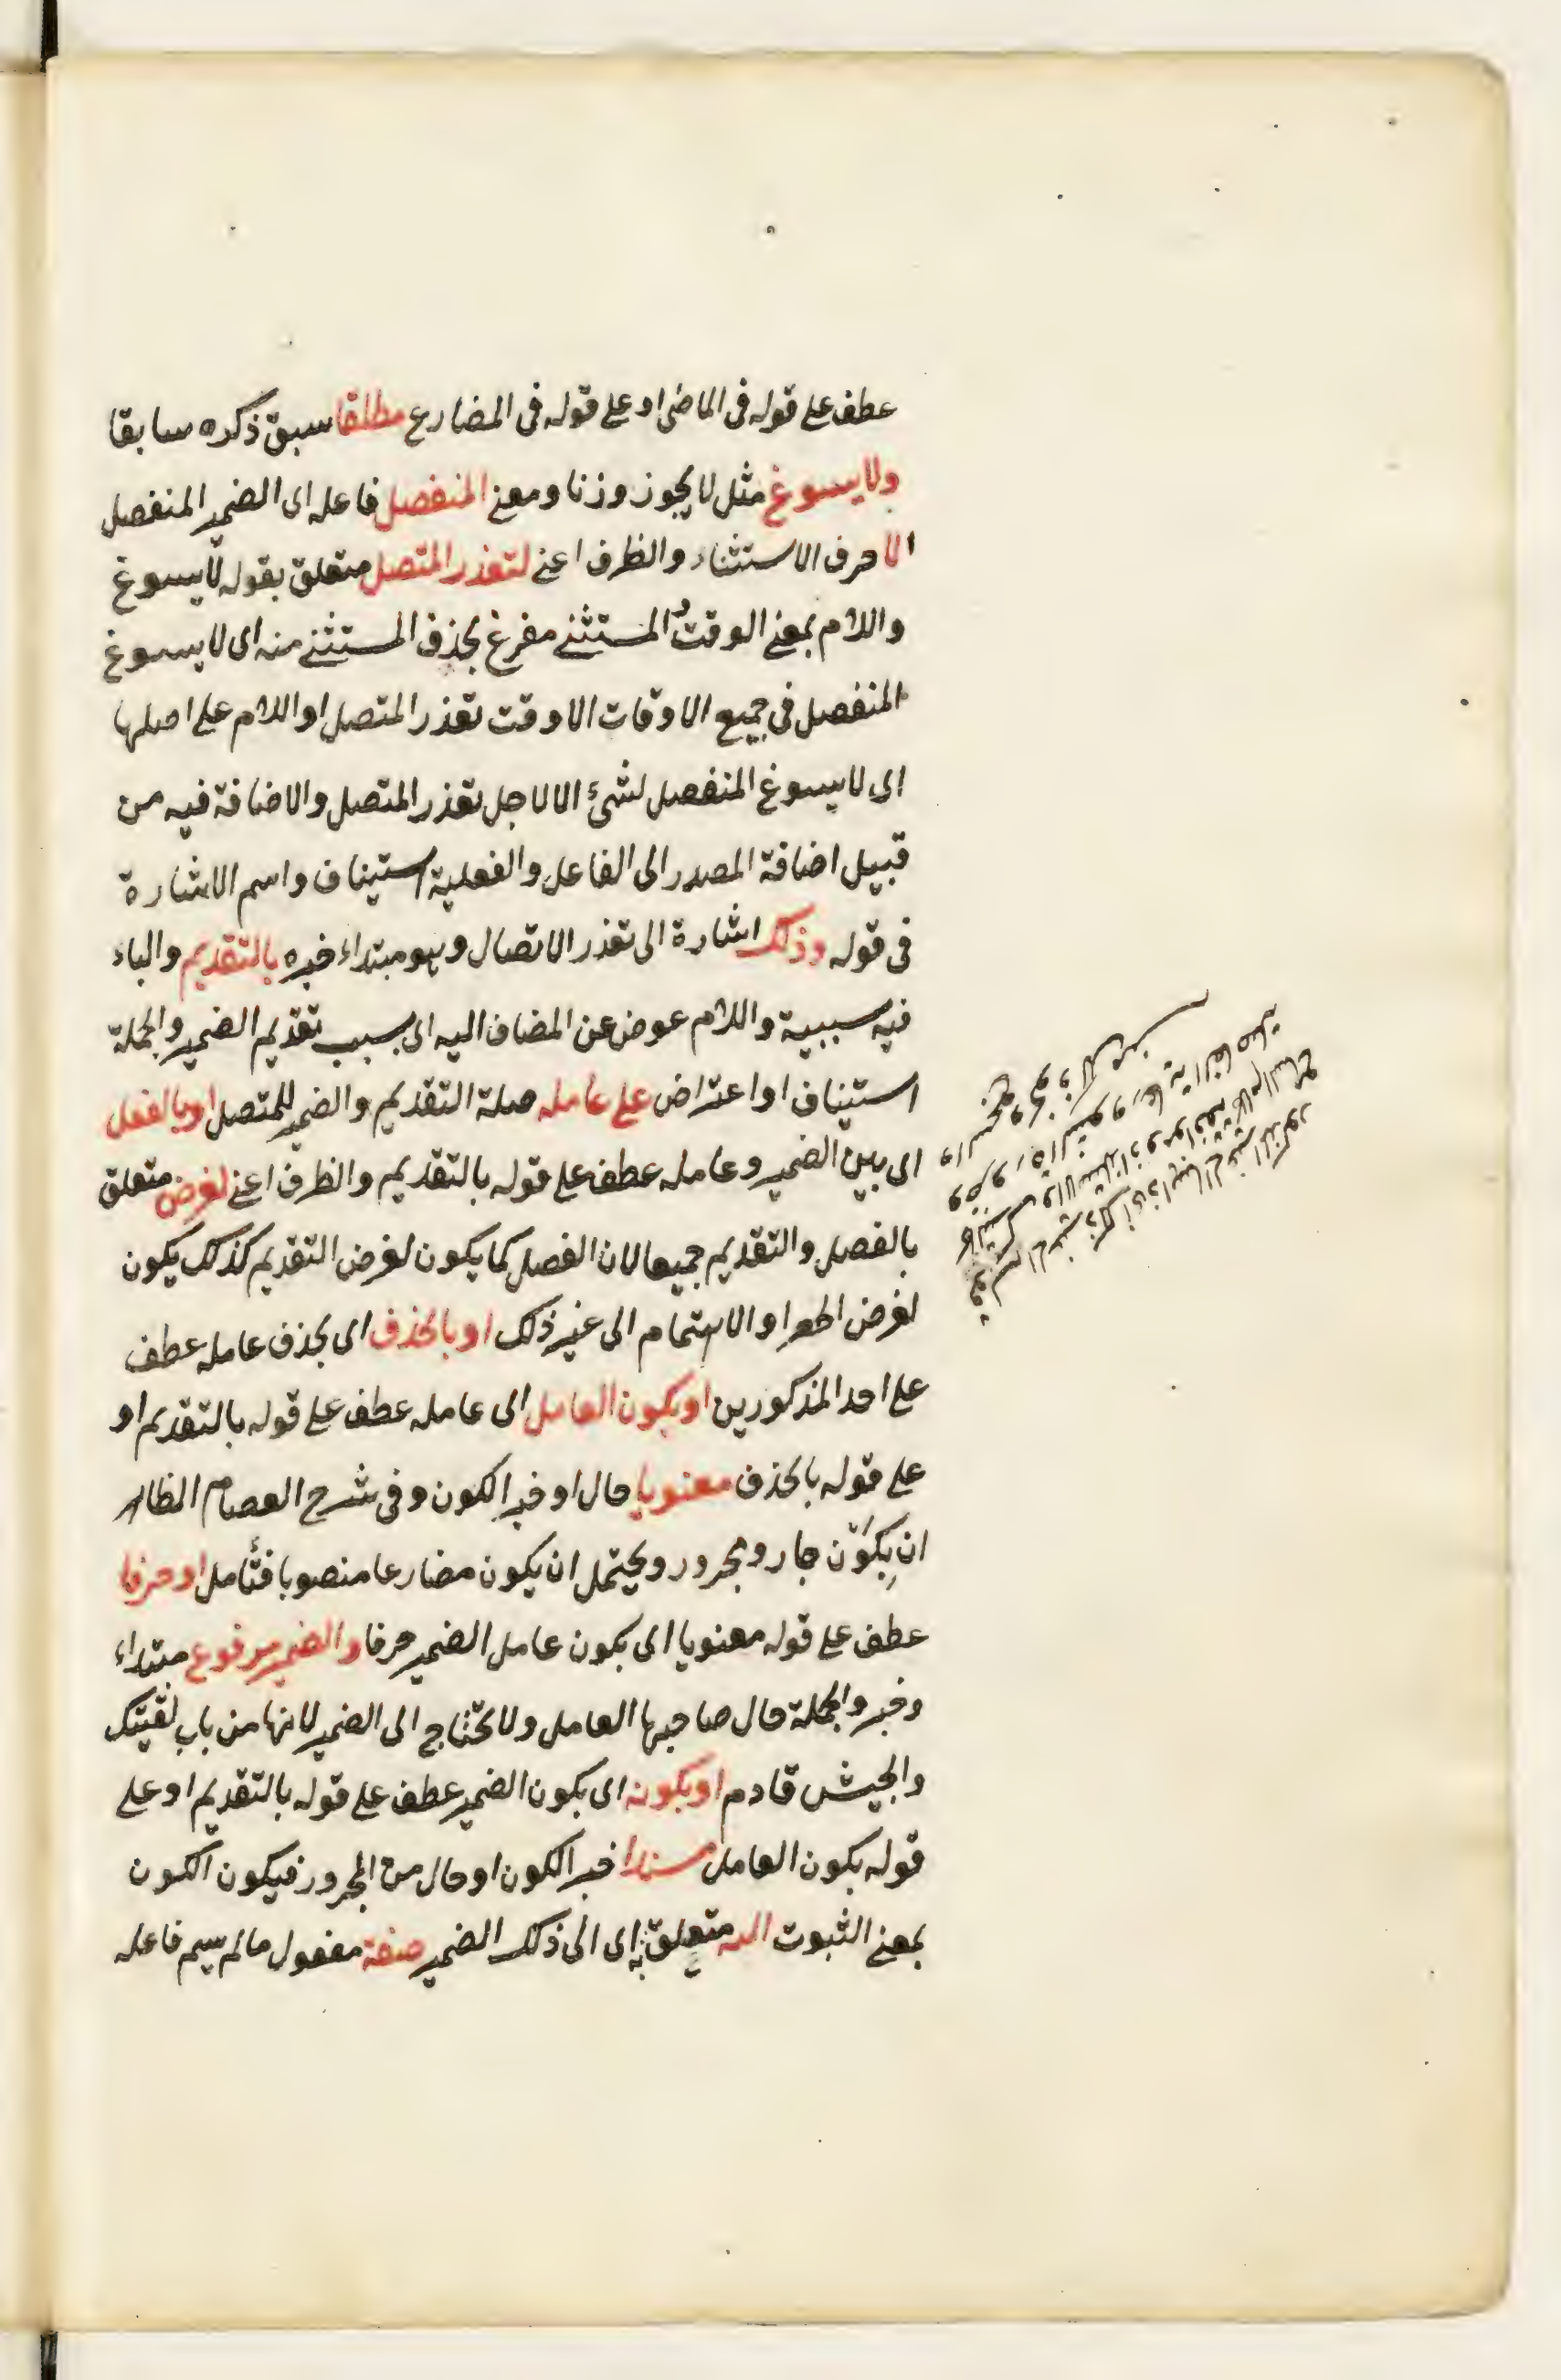 عطف على قوله فى الماضى او على قوله فى المضارع مطلقا سبق ذكره سابقا
ولا يسوغ مثل لا يجوز وزنا ومعنى المنفصل فاعله اى الضمير المنفصل
الا حرف الاستثناء والظرف اعنى لتعذر المتصل متعلق بقوله لا يسوغ
واللام بمعنى الوقت والمستثنى مفرغ بحذف المستثنى منه اى لا يسوغ
المنفصل فى جميع الاوقات الا وقت تعذر المتصل او اللام على اصلها
اى لا يسوغ المنفصل لشئ الا لاجل تعذر المتصل والاضافة فيه من
قبيل اضافة المصدر الى الفاعل والفعلية استيناف واسم الاشارة
فى قوله وذلك اشارة الى تعذر الاتصال وهو مبتداء خبره بالتقديم والباء
فيه سببية واللام عوض عن المضاف اليه اى بسبب تقديم الضمير والجملة
استيناف او اعتراض على عامله صلة التقديم والضمير للمتصل او بالفعل
اى بين الضمير وعامله عطف على قوله بالتقديم والظرف اعنى لغرض متعلق
بالفصل والتقديم جميعا لان الفصل كما يكون لغرض التقديم كذلك يكون
لغرض او الاهتمام الى غير ذلك او بالحذف اى بحذف عامله عطف
على احد المذكورين او بكون العامل اى عامله عطف على قوله بالتقديم او
على قوله بالحذف معنويا حال او خبر الكون وفى شرح العصام الظاهر
ان بكون جار ومجرور ويحتمل ان يكون مضارعا منصوبا فتأمل او حرفا
عطف على قوله معنويا اى بكون عامل الضمير حرفا والضمير مرفوع مبتداء
وخبر والجملة حال صاحبها العامل ولا تحتاج الى الضمير لانها من باب لقيتك
والجيش قادم او بكونه اى بكون الضمير عطف على قوله بالتقديم او على
قوله بكون العامل مسندا خبر الكون او حال من المجرور فيكون الكون
بمعنى الثبوت اليه متعلق به اى الى ذلك الضمير صفة مفعول مالم يسم فاعله